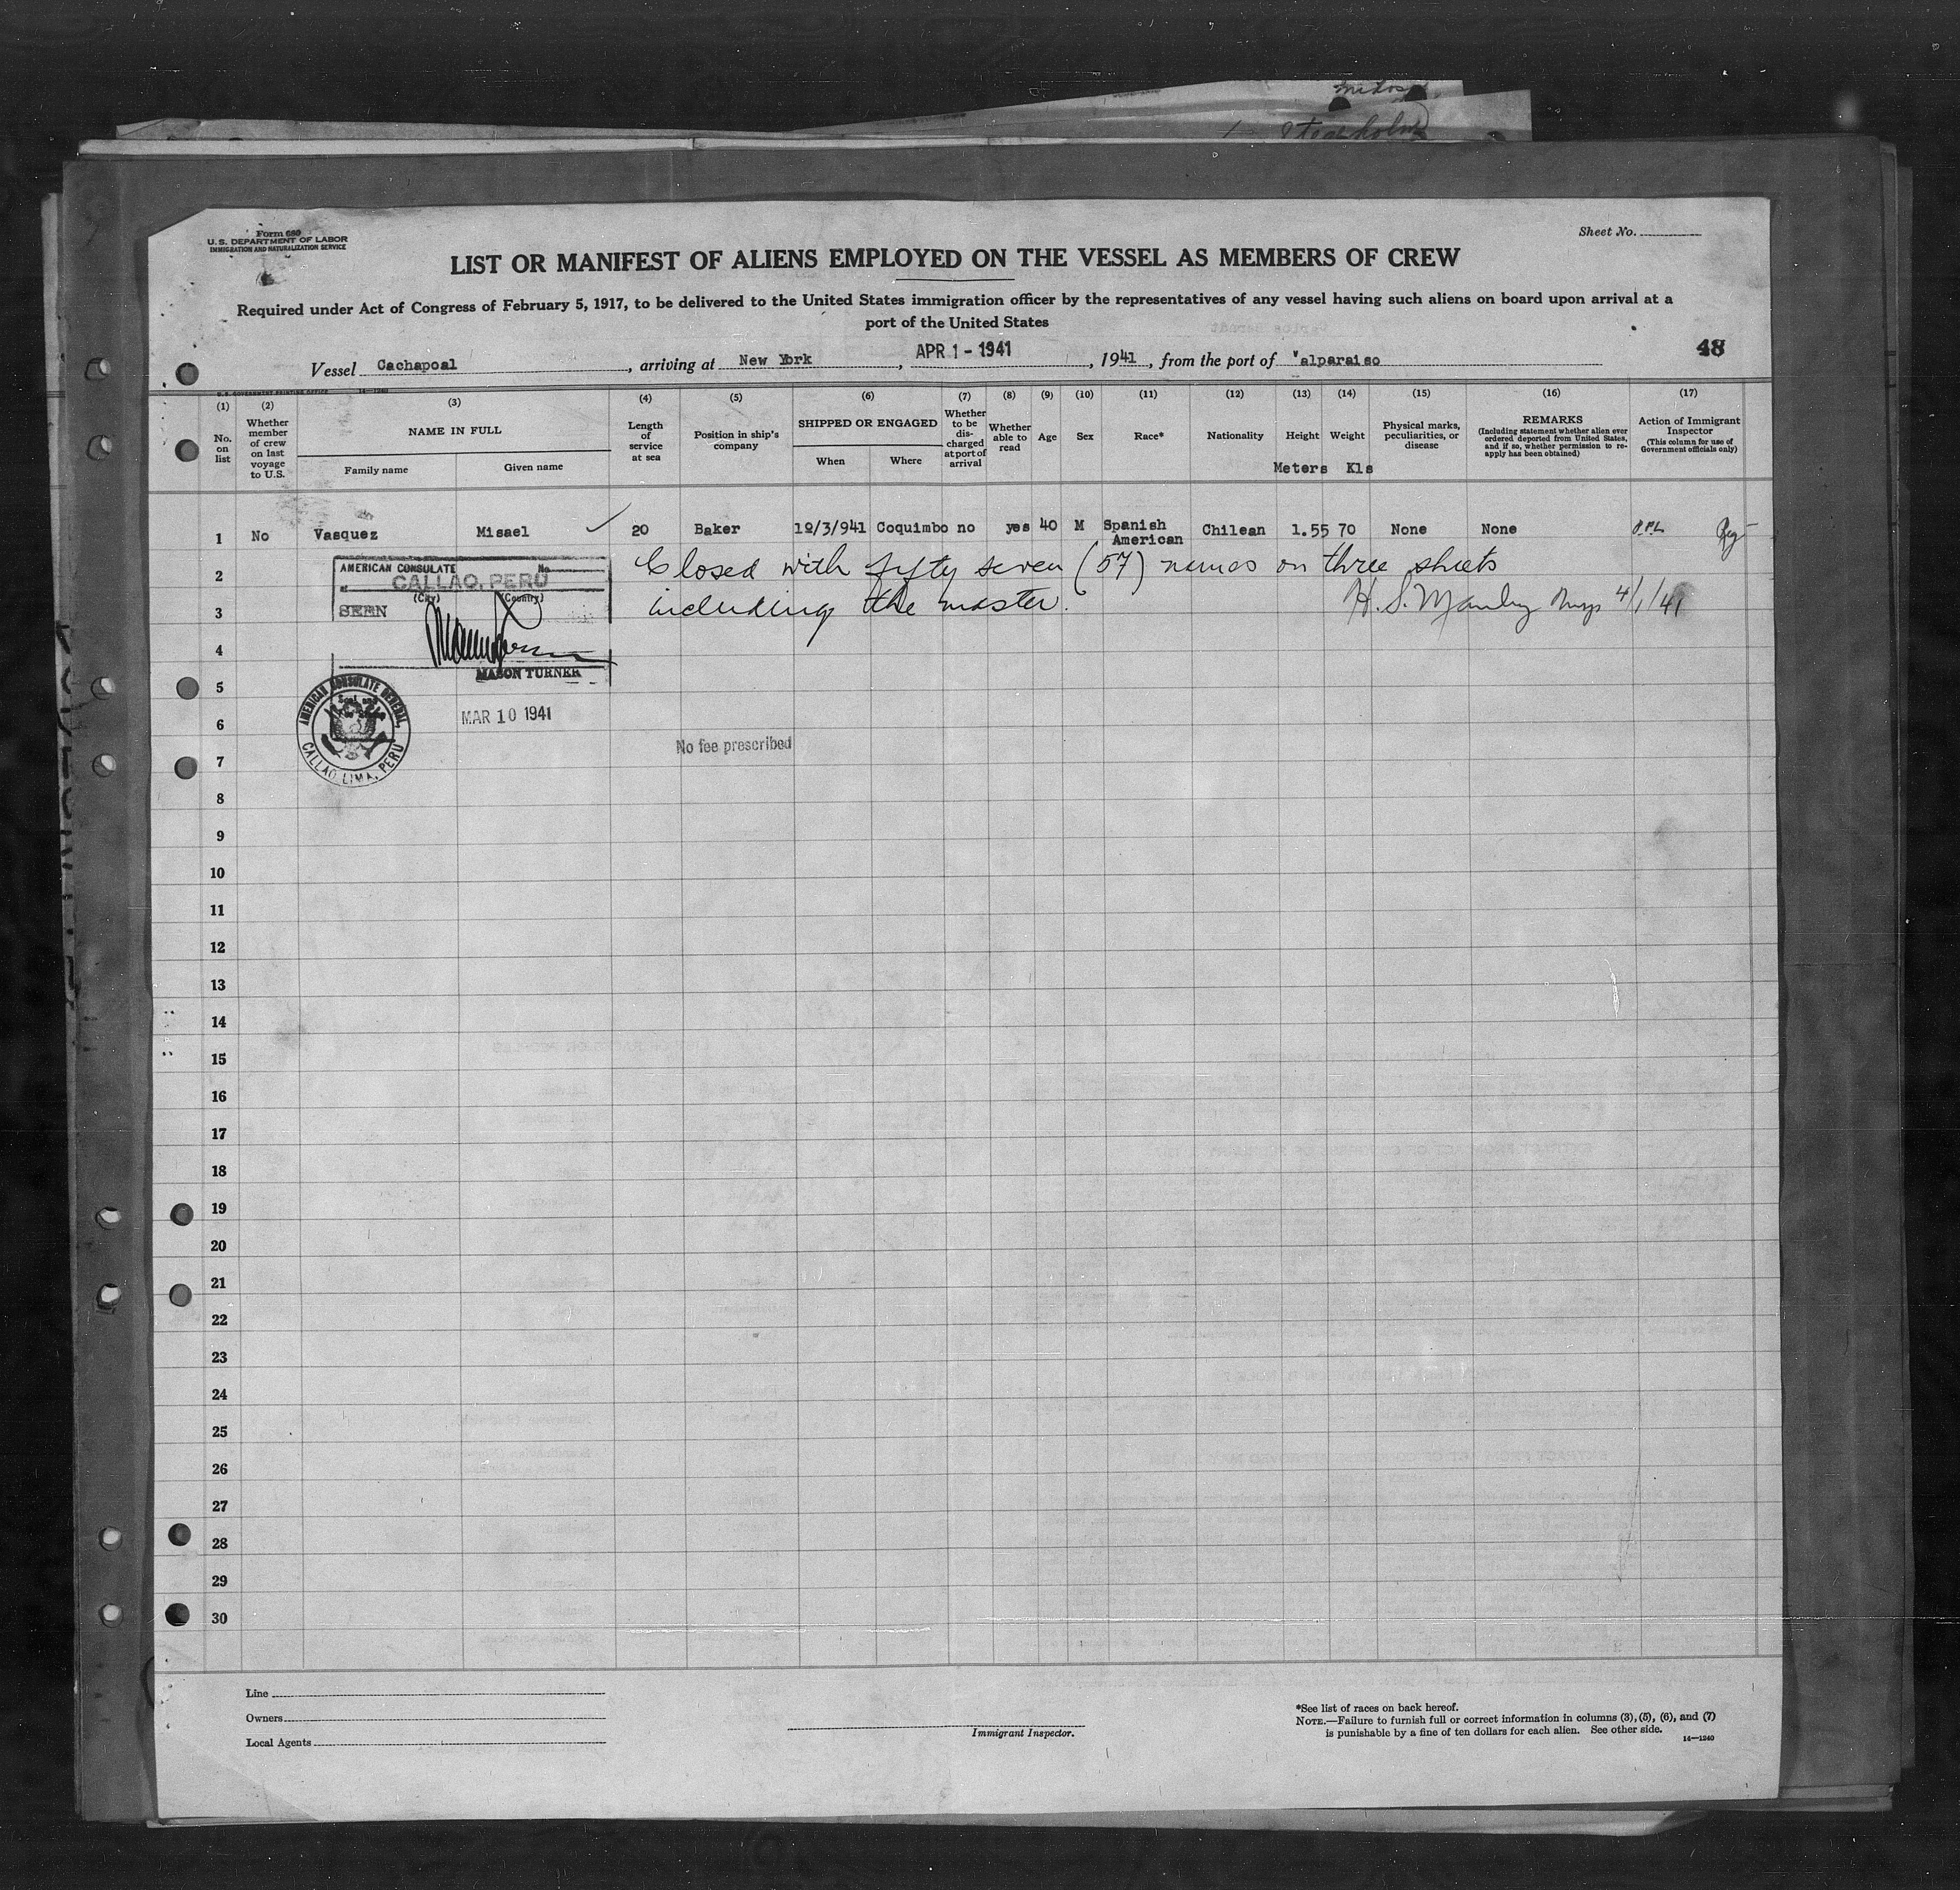 Form 680
U.S. DEPARTMENT OF LABOR
IMMIGRATION AND NATURALIZATION SERVICE
Sheet No.
LIST OR MANIFEST OF ALIENS EMPLOYED ON THE VESSEL AS MEMBERS OF CREW
Required under Act of Congress of February 5, 1917, to be delivered to the United States immigration officer by the representatives of any vessel having such aliens on board upon arrival at a
port of the United States
48
Vessel Cachapoal, arriving at New York, APR 1 - 1941, 1941, from the port of Valparaiso
U.S. GOVERNMENT PRINTING OFFICE 14—1240
(1) No. on list
(2) Whether member of crew on last voyage to U.S.
(3) NAME IN FULL
Family name Given name
(4) Length of service at sea
(5) Position in ship's company
(6) SHIPPED OR ENGAGED
When Where
(7) Whether to be discharged at port of arrival
(8) Whether able to read
(9) Age
(10) Sex
(11) Race*
(12) Nationality
(13) Height Meters
(14) Weight Kls
(15) Physical marks, peculiarities, or disease
(16) REMARKS
(Including statement whether alien ever ordered deported from United States, and if so, whether permission to reapply has been obtained)
(17) Action of Immigrant Inspector
(This column for use of Government officials only)
1 No Vasquez Misael 20 Baker 10/3/941 Coquimbo no yes 40 M Spanish American Chilean 1.55 70 None None
2 Closed with fifty seven (57) names on three sheets
3 including the master. H. S. Manley Insp 4/1/41
AMERICAN CONSULATE No.
at CALLAO, PERU
(City) (Country)
SEEN
MASON TURNER
AMERICAN CONSULATE GENERAL
CALLAO, LIMA, PERU
MAR 10 1941
No fee prescribed
4
5
6
7
8
9
10
11
12
13
14
15
16
17
18
19
20
21
22
23
24
25
26
27
28
29
30
Line
Owners
Local Agents
Immigrant Inspector.
*See list of races on back hereof.
NOTE.—Failure to furnish full or correct information in columns (3), (5), (6), and (7)
is punishable by a fine of ten dollars for each alien. See other side.
14—1240